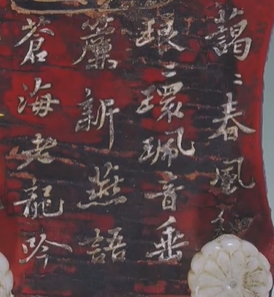 藹〻春風細
琅〻環珮音垂
簾新燕語
蒼海老龍吟